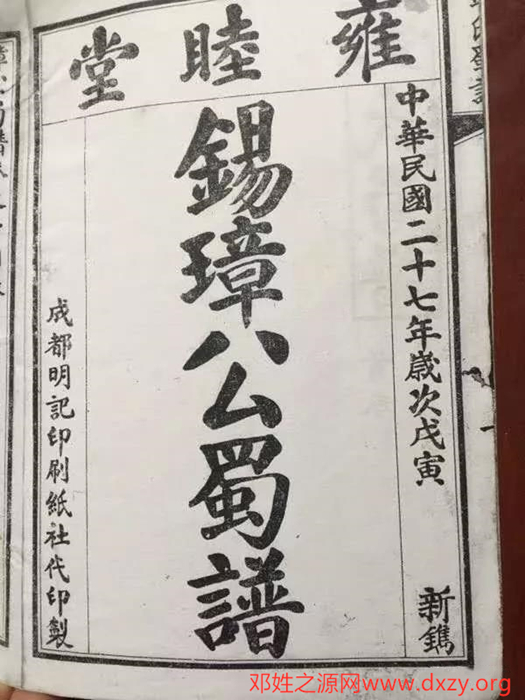 雍睦堂
中華民國二十七年歲次戊寅
新鐫
錫璋公蜀譜
成都明記印刷紙社代印製
邓姓之源网www.dxzy.org